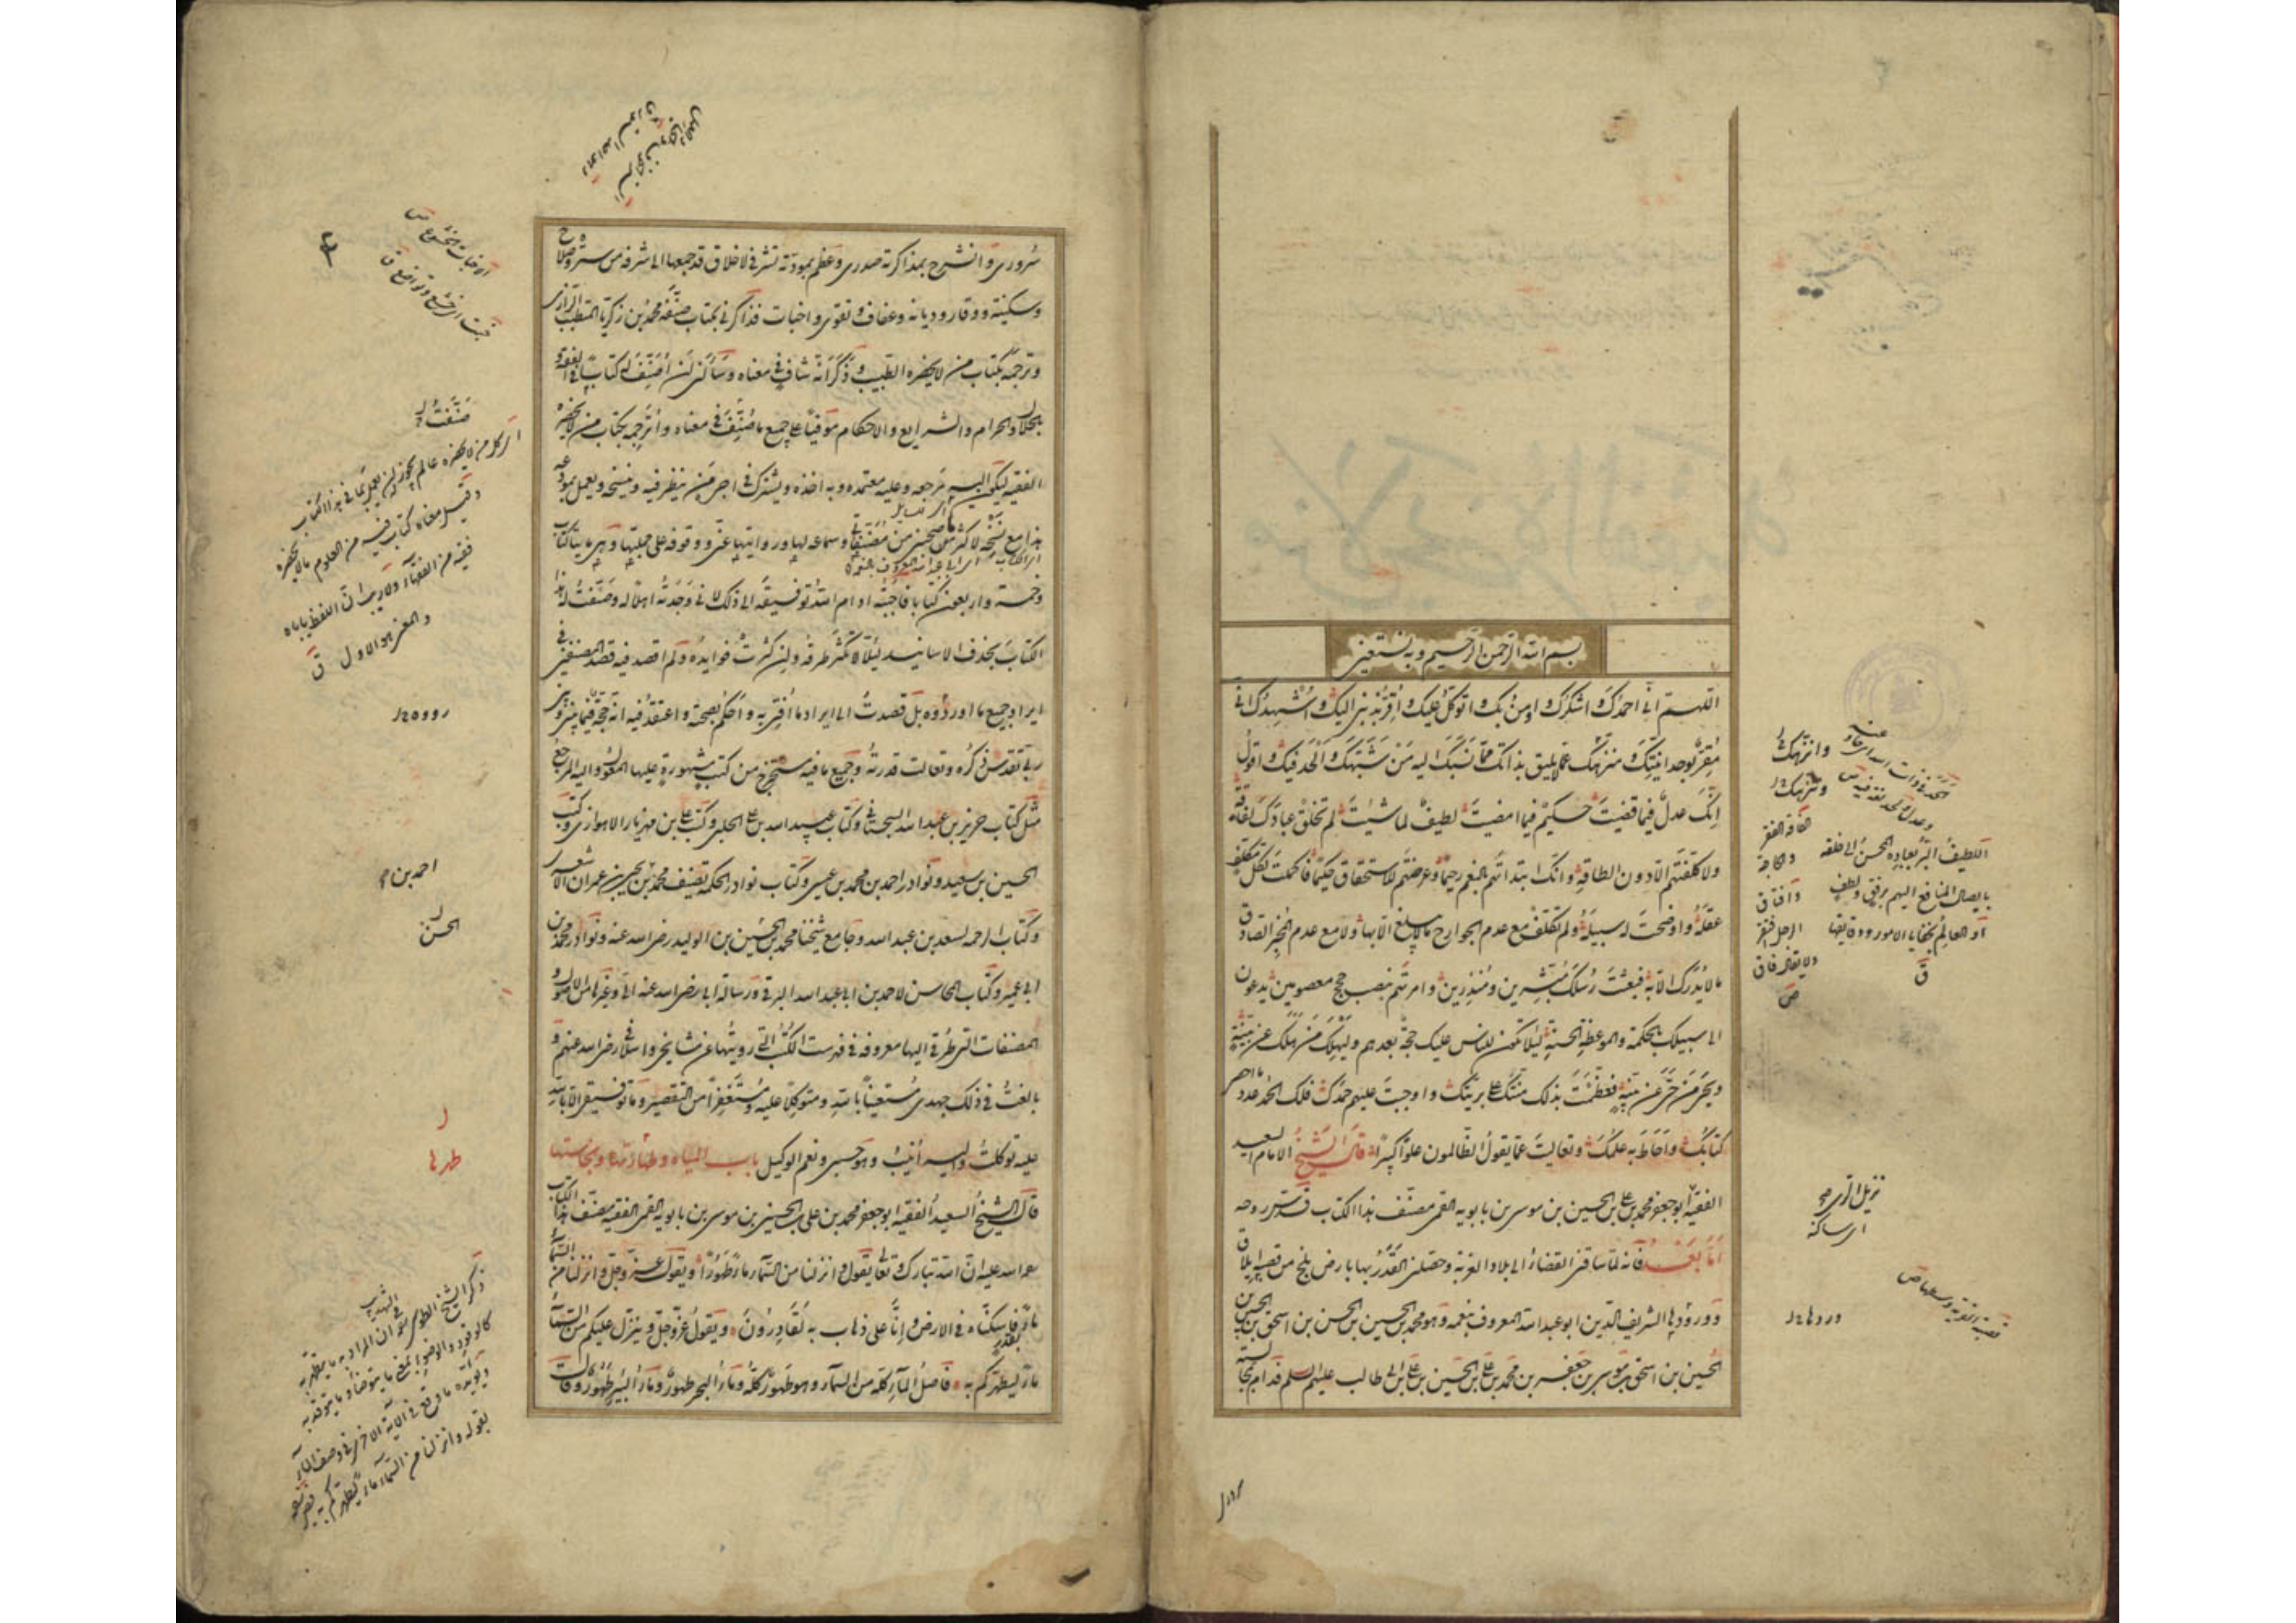 بسم الله الرحمن الرحيم وبه نستعين
اللهم اني احمدك واشكرك واومن بك واتوكل عليك واقر بذنبي اليك واشهدك اني
مقر بوحدانيتك ومنزهك عما لا يليق بذاتك مما نسبك اليه من شبهك والحد فيك واقول
انك عدل فيما قضيت حكيم فيما امضيت لطيف لما شئت لم تخلق عبادك لفاقة
ولا كلفتهم الا دون الطاقة وانك ابتداتهم بالنعم رحيما وعرضتهم للاستحقاق حكيما فاكملت لكل مكلف
عقله واوضحت له سبيله ولم تكلف مع عدم الجوارح ما لا يبلغ الا بها ولا مع عدم المخبر الصادق
ما لا يدرك الا به فبعثت رسلك مبشرين ومنذرين وامرتهم بنصب حجج معصومين يدعون
الى سبيلك بالحكمة والموعظة الحسنة لئلا تكون للناس عليك حجة بعدهم وليهلك من هلك عن بينة
ويحيى من حي عن بينة فعظمت بذلك منتك على بريتك واوجبت عليهم حمدك فلك الحمد عدد ما احصى
كتابك واحاط به علمك وتعاليت عما يقول الظالمون علوا كبيرا قال الشيخ الامام السعيد
الفقيه ابو جعفر محمد بن علي بن الحسين بن موسى بن بابويه القمي مصنف هذا الكتاب قدس روحه
اما بعد فانه لما ساقني القضاء الى بلاد الغربة وحصلني القدر بها بارض بلخ من قصبة ايلاق
ووردها الشريف الدين ابو عبد الله المعروف بنعمه وهو محمد بن الحسين بن الحسن بن اسحق بن الحسين بن
الحسين بن اسحق بن موسى بن جعفر بن محمد بن علي بن الحسين بن علي بن ابي طالب عليهم السلم فدام بمجالسته
وانزهك
وتنزهك
اللطيف البر بعباده المحسن الى خلقه
بايصال المنافع اليهم برفق ولطف
او العالم بخفايا الامور ودقايقها
ق
الفاقة الفقر
والحاجة
ص
اي ساكنه
وردها
سروري وانشرح بمذاكرته صدري وعظم بمودته تشرفي لاخلاق قد جمعها الى شرفه من ستر وصلاح
وسكينة ووقار وديانة وعفاف وتقوى واخبات فذاكرني بكتاب صنفه محمد بن زكريا المتطبب الرازي
وترجمه بكتاب من لا يحضره الطبيب وذكر انه شاف في معناه وسالني ان اصنف له كتابا في الفقه
والحلال والحرام والشرايع والاحكام موفيا على جميع ما صنفت في معناه واترجمه بكتاب من لا يحضره
الفقيه ليكون اليه مرجعه وعليه معتمده وبه اخذه ويشترك في اجر من ينظر فيه وينسخه ويعمل بمودعه
هذا مع نسخه لاكثر ما صحبني من مصنفاتي وسماعه لها وروايتها عني ووقوفه على جملتها وهي مايتا كتاب
وخمسة واربعون كتابا فاجبته ادام الله توفيقه الى ذلك لاني وجدته اهلا له وصنفت له هذا
الكتاب بحذف الاسانيد لئلا تكثر طرقه وان كثرت فوايده ولم اقصد فيه قصد المصنفين في
ايراد جميع ما اوردوه بل قصدت الى ايراد ما افتي به واحكم بصحته واعتقد فيه انه حجة فيما بيني وبين
ربي تقدس ذكره وتعالت قدرته وجميع ما فيه مستخرج من كتب مشهورة عليها المعول واليه المرجع
مثل كتاب حريز بن عبد الله السجستاني وكتاب عبيد الله بن علي الحلبي وكتب علي بن مهزيار الاهوازي وكتب
الحسين بن سعيد ونوادر احمد بن محمد بن عيسى وكتاب نوادر الحكمة تصنيف محمد بن احمد بن يحيى بن عمران الاشعري
وكتاب الرحمه لسعد بن عبد الله وجامع شيخنا محمد بن الحسين بن الوليد رضي الله عنه ونوادر محمد بن
ابي عمير وكتاب المحاسن لاحمد بن ابي عبد الله البرقي ورسالة ابي رضي الله عنه الي وغيرها من الاصول و
المصنفات التي طرقي اليها معروفة في فهرست الكتب التي رويتها عن مشايخي واسلافي رضي الله عنهم و
بالغت في ذلك جهدي مستعينا بالله ومتوكلا عليه ومستغفرا من التقصير وما توفيقي الا بالله
عليه توكلت واليه انيب وهو حسبي ونعم الوكيل باب المياه وطهارتها ونجاستها
قال الشيخ السعيد الفقيه ابو جعفر محمد بن علي بن الحسين بن موسى بن بابويه القمي الفقيه مصنف هذا الكتاب
رحمة الله عليه ان الله تبارك وتعالى يقول وانزلنا من السماء ماء طهورا ويقول عز وجل وانزلنا من السماء
ماء بقدر فاسكناه في الارض وانا على ذهاب به لقادرون ويقول عز وجل وينزل عليكم من السماء
ماء ليطهركم به فاصل الماء كله من السماء وهو طهور كله وماء البحر طهور وماء البئر طهور وقال
صنفت
اي كل من لا يحضره عالم يجوز له ان يعمل بما في هذا الكتاب
وقيل معناه كتاب فيه من العلوم ما لا يحضره
فقيه من الفقهاء ولا ريب ان اللفظ ياباه
والمعنى هو الاول ق
احمد بن
الحسن
طرقها
ذكر الشيخ الطوسي في التهذيب